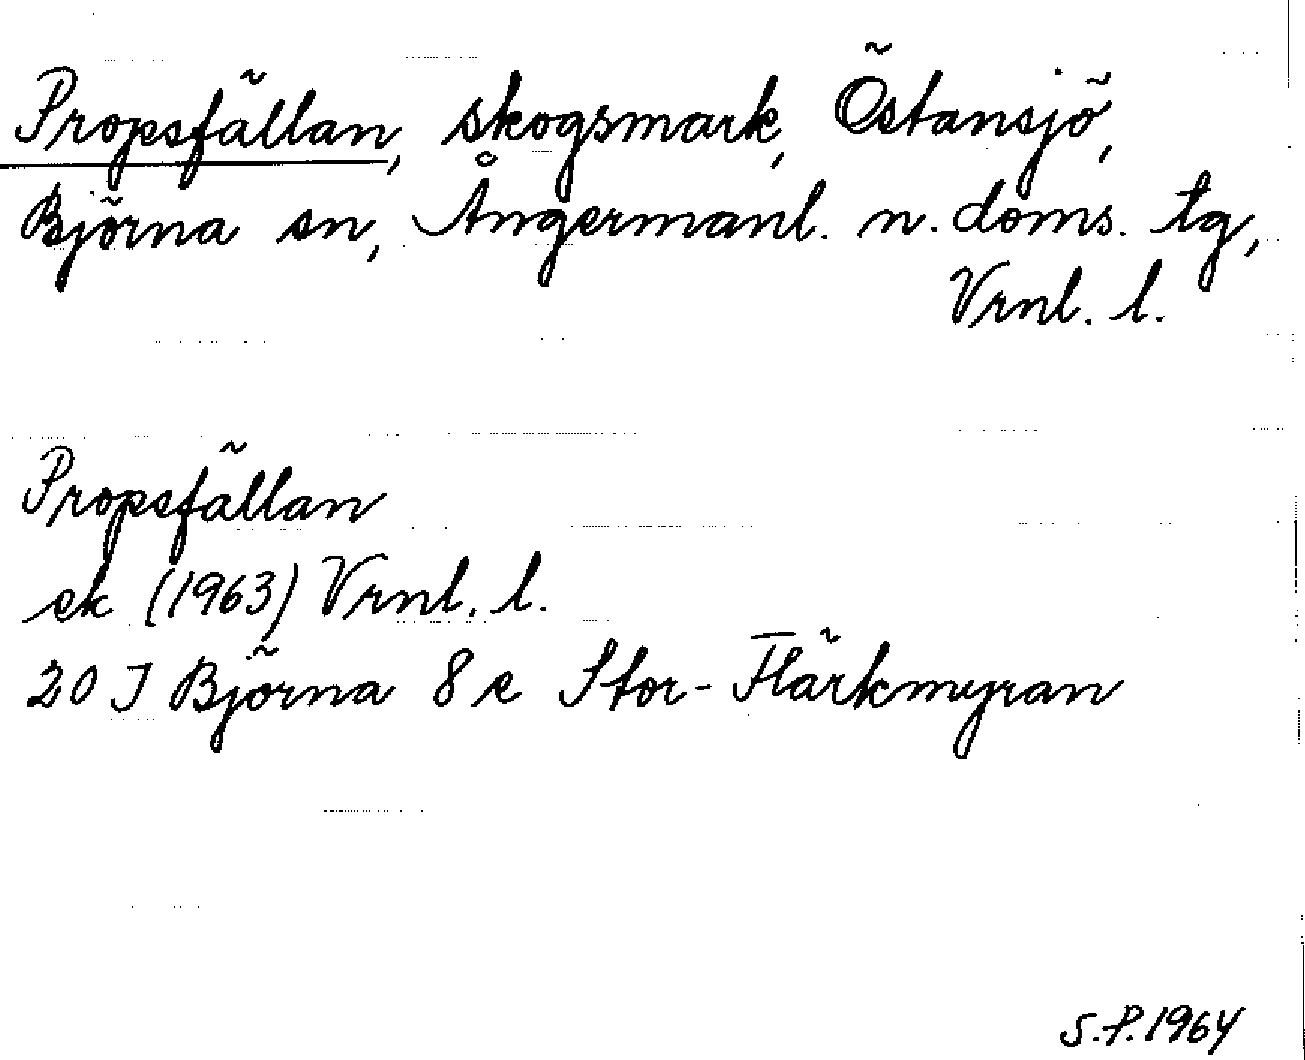 Propsfällan, skogsmark, Östansjö,
Björna sn, Ångermanl. n. doms. tg,
Vrnl. l.
Propsfällan
ek (1963) Vrnl. l.
20 J Björna 8 e Stor-Flärkmyran
S.P. 1964